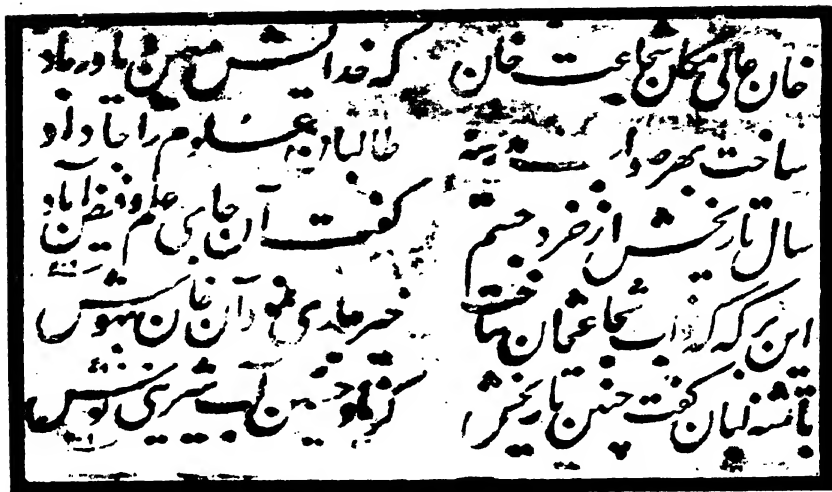 خان عالی مکان شجاعت خان که خدایش معین و یاور باد
ساخت بهر صواب مدرسه طالبان علوم را جا داد
سال تاریخش از خرد جستم گفت آن جای علم و فیض آباد
این برکه که نواب شجاعتخان ساخت خیر جاری نمود آن خان بهوش
با تشنه لبان گفت چنین تاریخش کز یاد حسین آب شیرین نوش